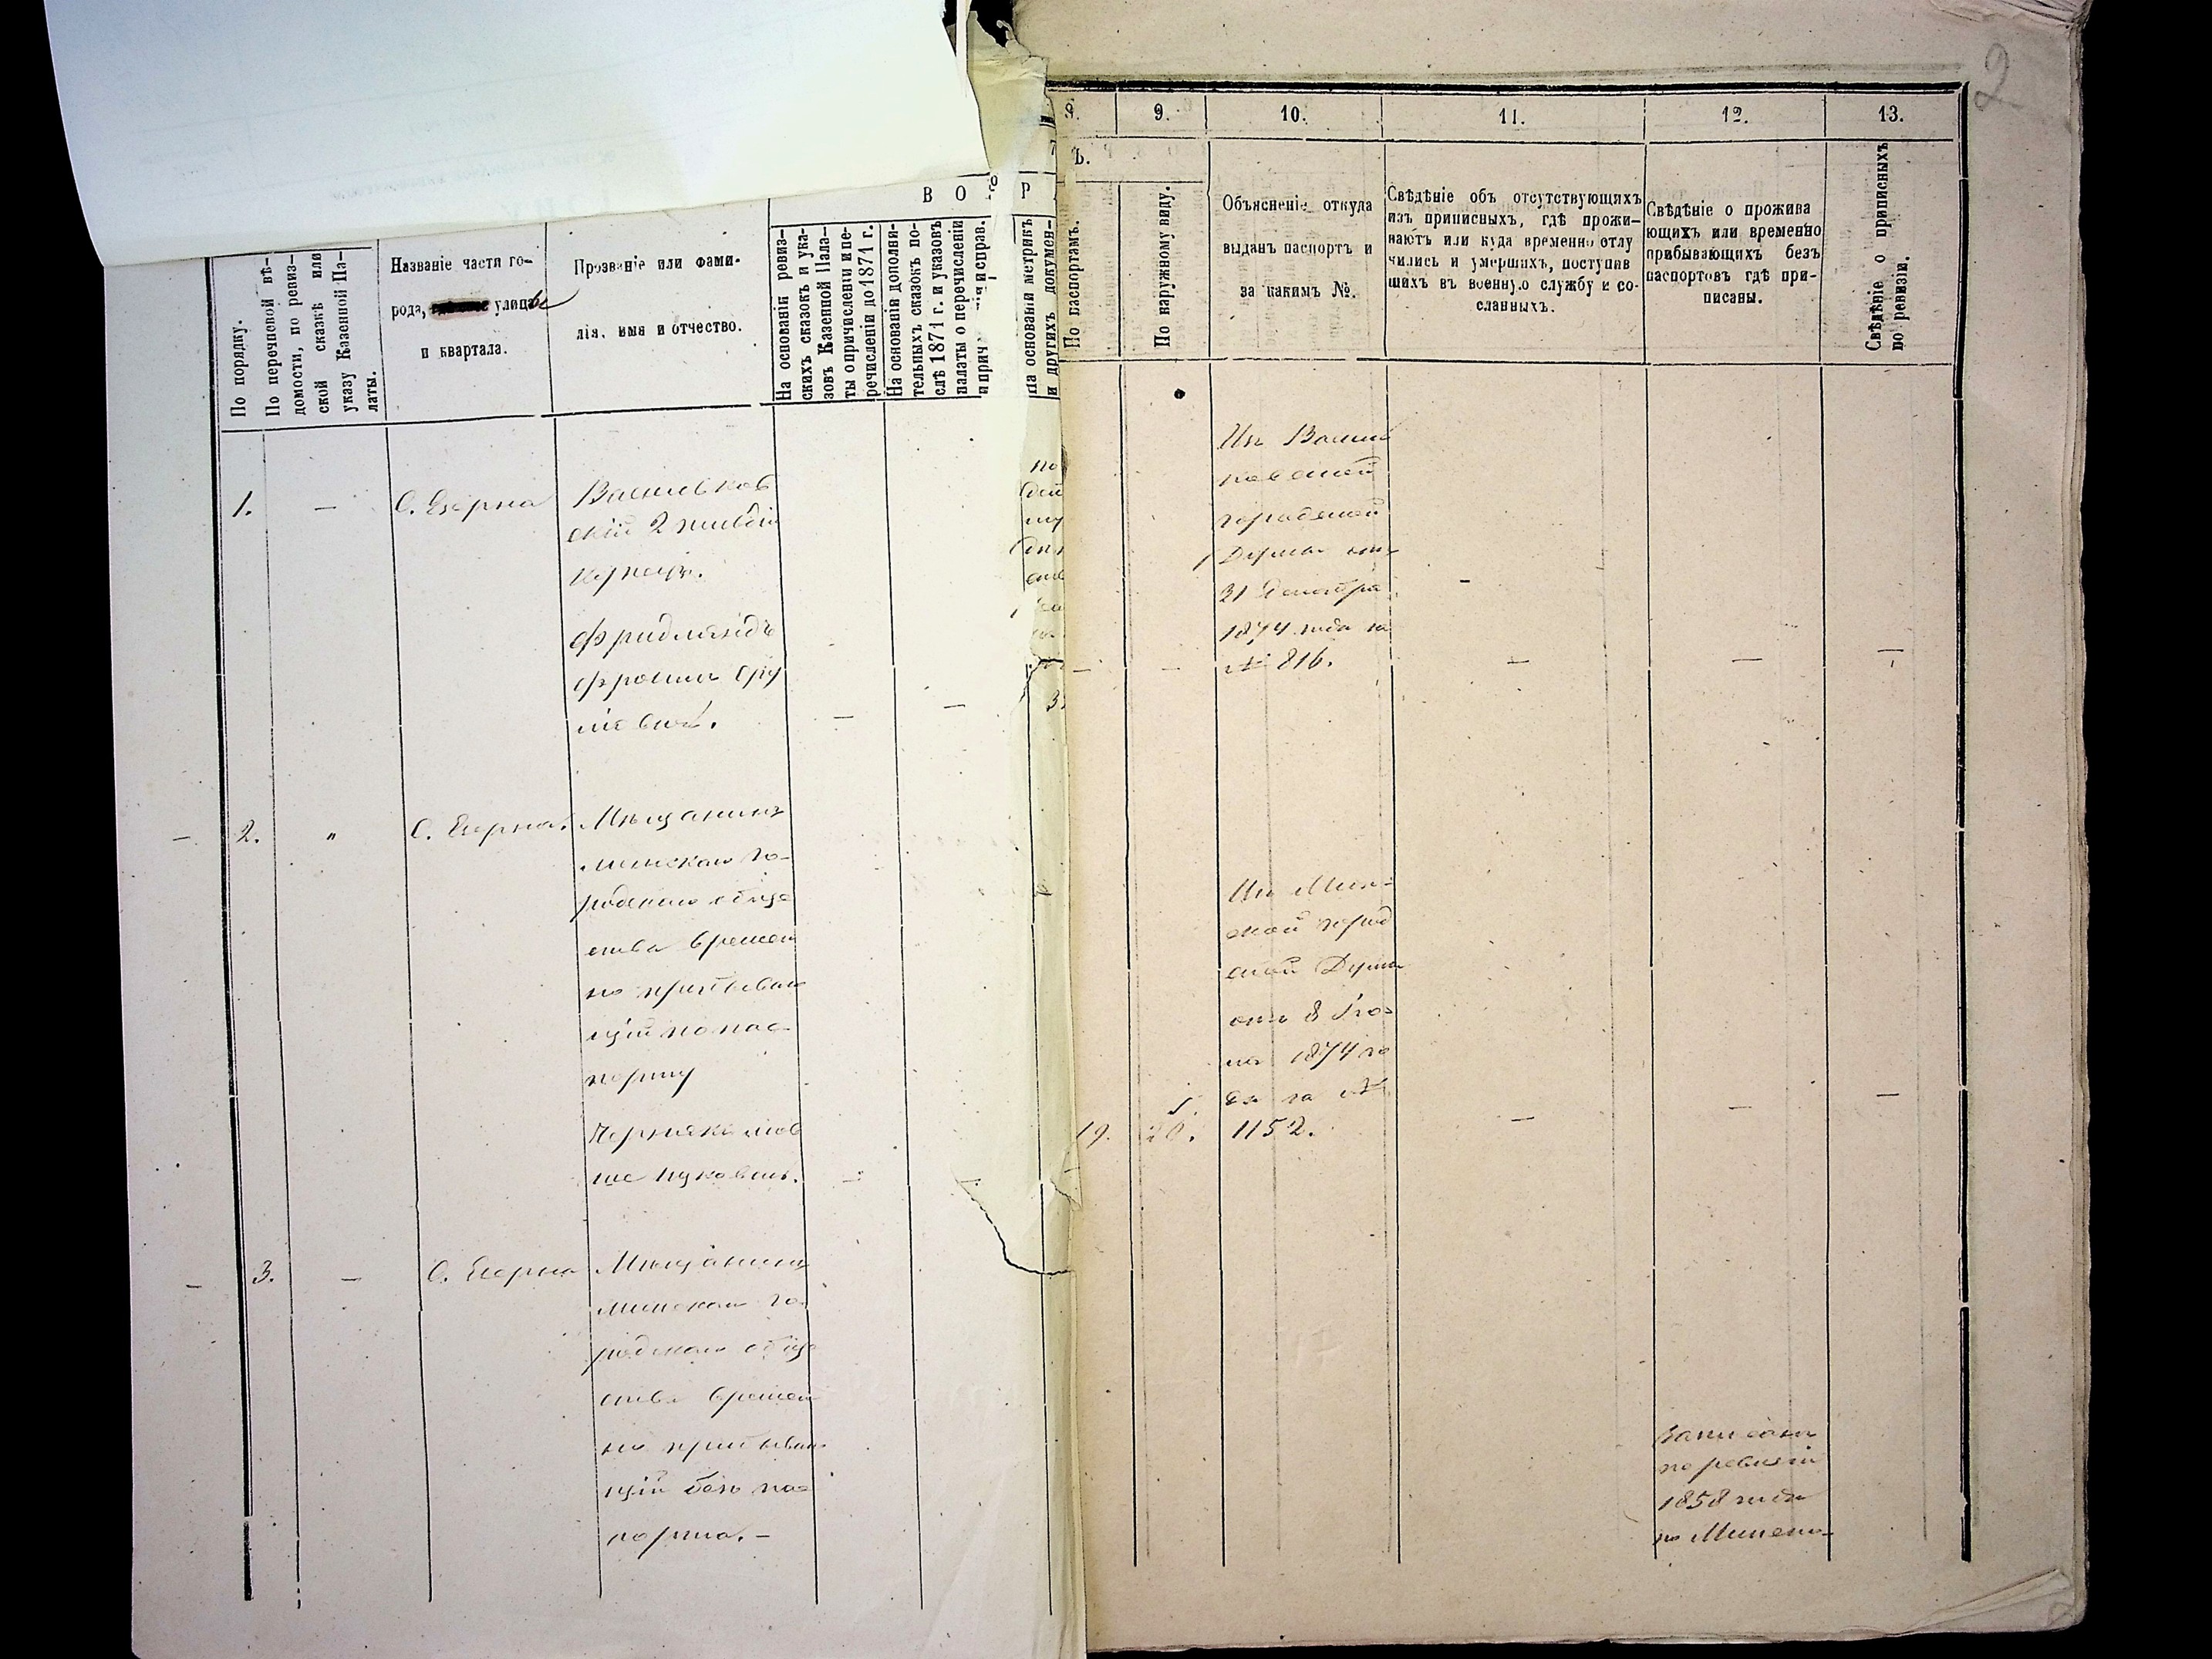 2
8.
9.
10.
11.
12.
13.
Ъ.
В О З Р
По порядку.
По перечневой вѣ-
домости, по ревиз-
ской сказкѣ или
указу Казенной Па-
латы.
Названіе части го-
рода, улицы
и квартала.
Прозваніе или фами-
лія, имя и отчество.
На основаніи ревиз-
скихъ сказокъ и ука-
зовъ Казенной Пала-
ты о причисленіи и пе-
речисленіи до 1871 г.
На основаніи дополни-
тельныхъ сказокъ по-
слѣ 1871 г. и указовъ
палаты о перечисленіи
и прич и справ.
На основаніи метрикъ
и другихъ докумен-
По паспортамъ.
По наружному виду.
Объясненіе откуда
выданъ паспортъ и
за какимъ №.
Свѣдѣніе объ отсутствующихъ
изъ приписныхъ, гдѣ прожи-
ваютъ или куда временно отлу
чились и умершихъ, поступив
шихъ въ военную службу и со-
сланныхъ.
Свѣдѣніе о прожива
ющихъ или временно
прибывающихъ безъ
паспортовъ гдѣ при-
писаны.
Свѣдѣніе о приписныхъ
по ревизіи.
1.
—
С. Езерна
Васильков
скій 2 гильдіи
купецъ.
Фридляндъ
Фроимъ Сру
левичъ.
Изъ Василь
ковской
городской
Думы отъ
31 Декабря
1874 года за
№ 816.
2.
"
С. Езерна.
Мѣщанинъ
минскаго го-
родскаго обще
ства времен
но прибываю
щій по пас-
порту
Чернякъ Мов
ша Нуховичъ.
19.
20.
Изъ Мин-
ской город
ской Думы
отъ 8 Ію-
1874 го
да за №
1152.
3.
—
С. Езерна
Мѣщанинъ
минскаго го-
родскаго обще
ства времен
но прибываю
щій безъ пас
порта. —
Записанъ
по ревизіи
1858 года
по Минско-